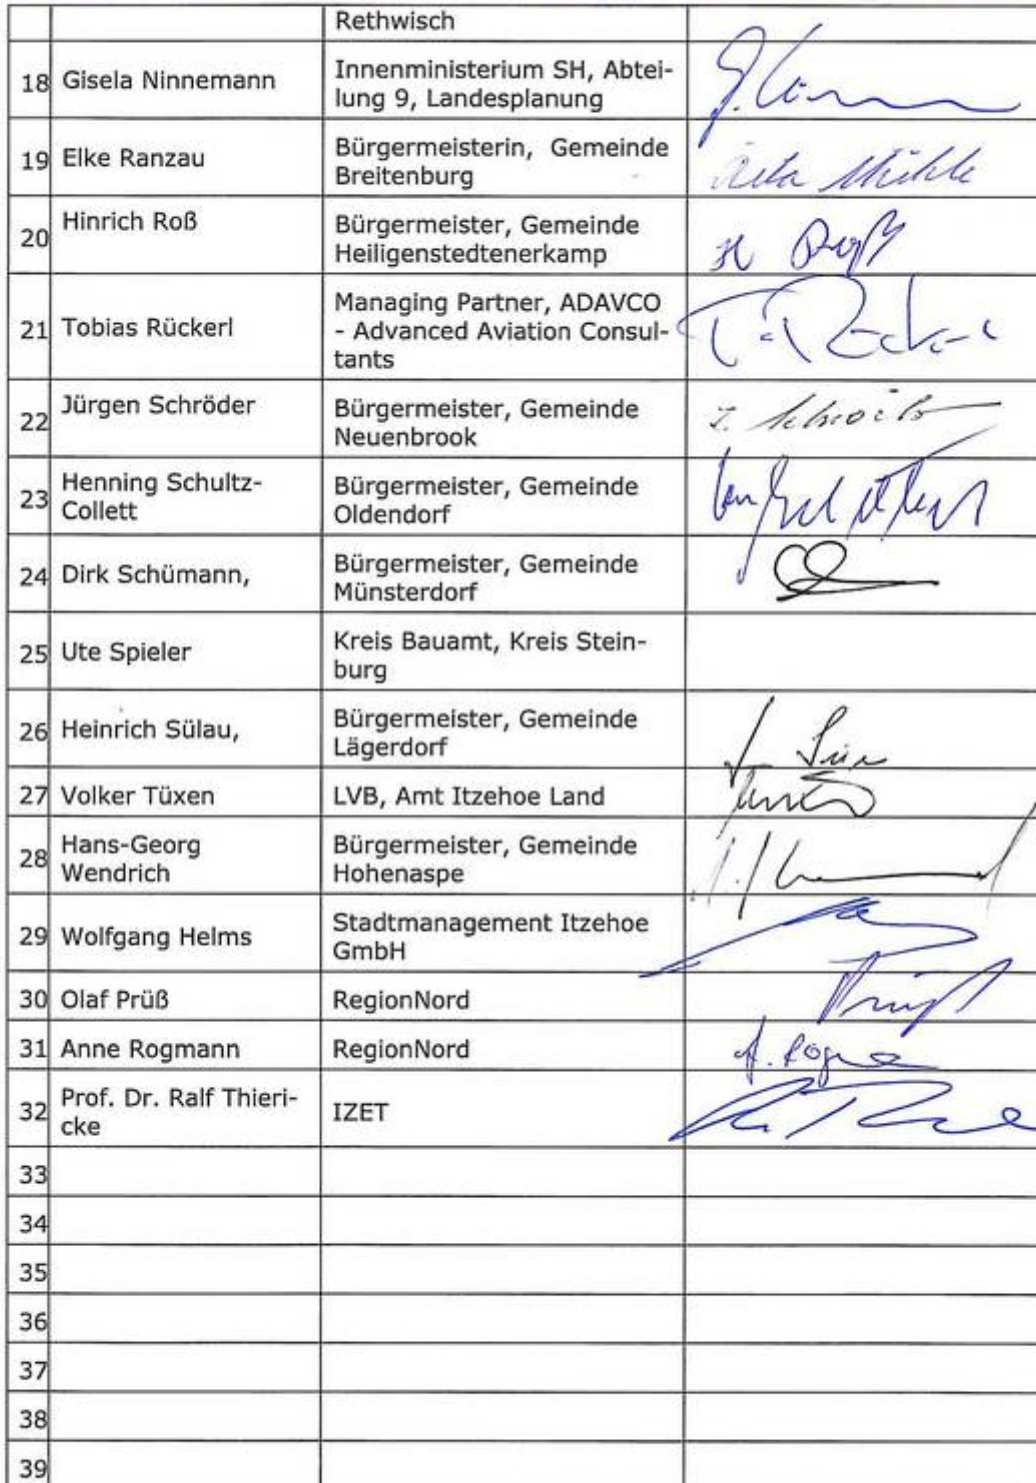 Rethwisch
18 Gisela Ninnemann Innenministerium SH, Abtei-
lung 9, Landesplanung
19 Elke Ranzau Bürgermeisterin, Gemeinde
Breitenburg
20 Hinrich Roß Bürgermeister, Gemeinde
Heiligenstedtenerkamp
21 Tobias Rückerl Managing Partner, ADAVCO
- Advanced Aviation Consul-
tants
22 Jürgen Schröder Bürgermeister, Gemeinde
Neuenbrook
23 Henning Schultz-
Collett Bürgermeister, Gemeinde
Oldendorf
24 Dirk Schümann, Bürgermeister, Gemeinde
Münsterdorf
25 Ute Spieler Kreis Bauamt, Kreis Stein-
burg
26 Heinrich Sülau, Bürgermeister, Gemeinde
Lägerdorf
27 Volker Tüxen LVB, Amt Itzehoe Land
28 Hans-Georg
Wendrich Bürgermeister, Gemeinde
Hohenaspe
29 Wolfgang Helms Stadtmanagement Itzehoe
GmbH
30 Olaf Prüß RegionNord
31 Anne Rogmann RegionNord
32 Prof. Dr. Ralf Thieri-
cke IZET
33
34
35
36
37
38
39